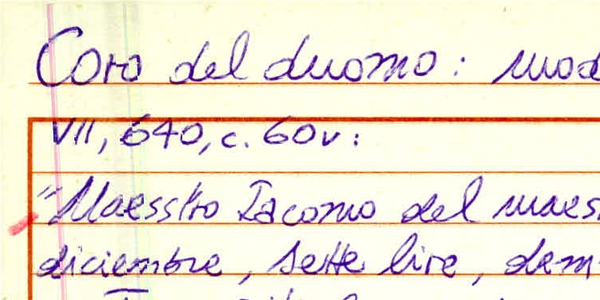 Coro del duomo: mod
VII, 640, c. 60v:
"Maesstro Iacomo del maes
diciembre, sette lire, dem